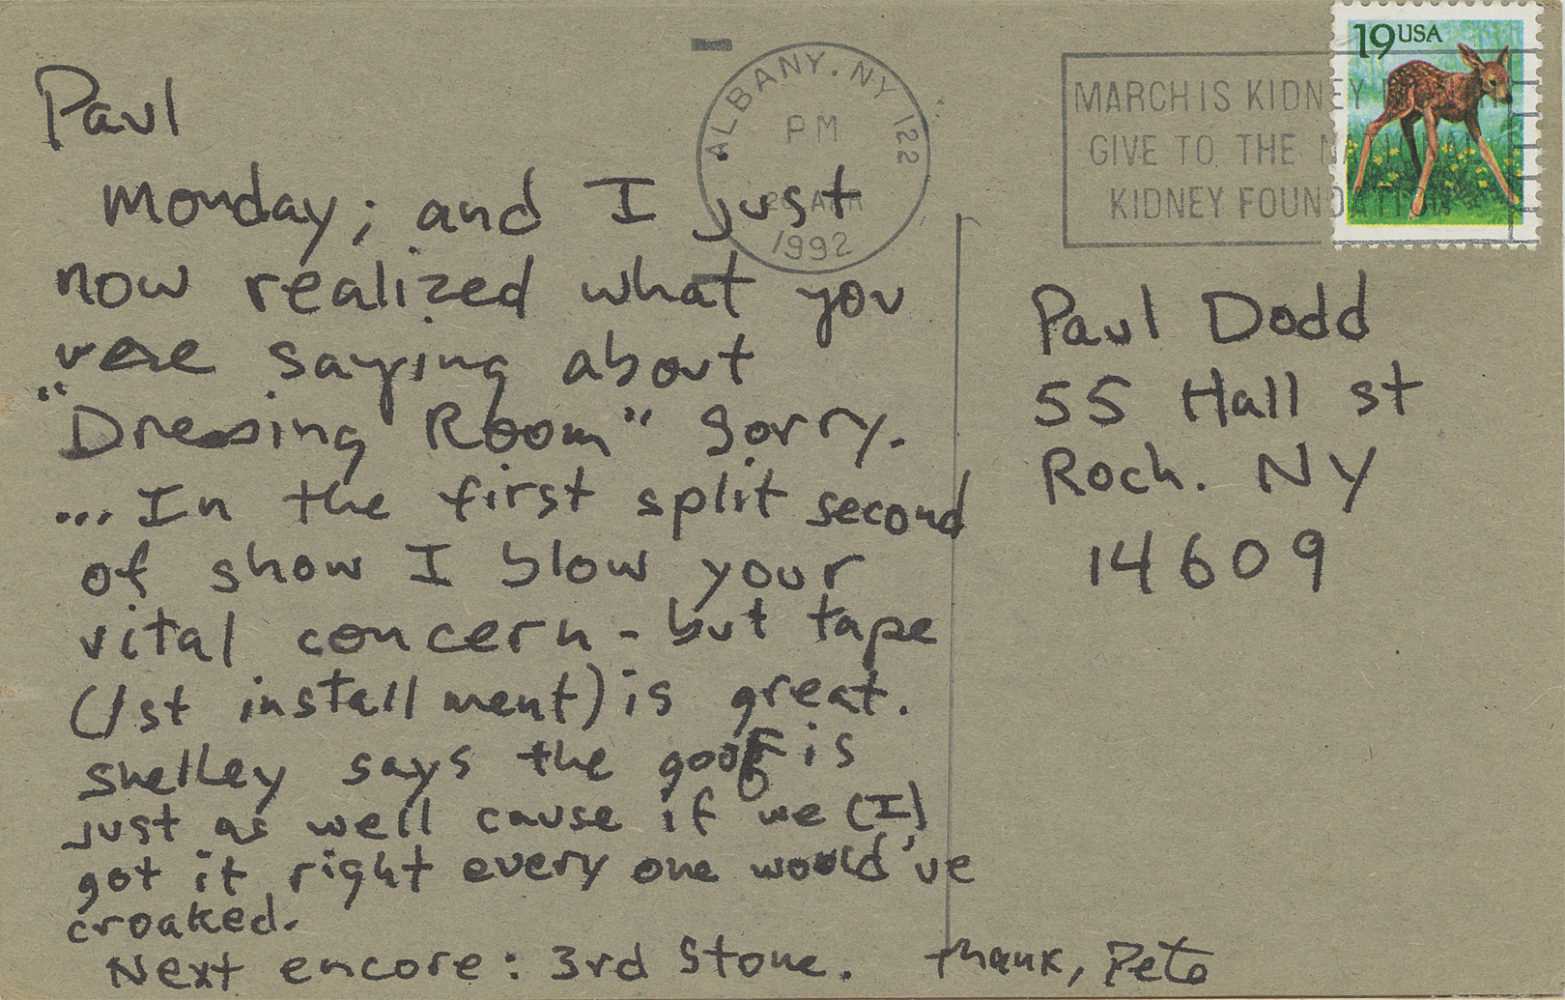 Paul
Monday; and I just
now realized what you
were saying about
"Dressing Room" Sorry.
... In the first split second
of show I blow your
vital concern - but tape
(1st installment) is great.
Shelley says the goof is
just as well cause if we (I)
got it right every one would've
croaked.
Next encore: 3rd Stone. thank, Pete
ALBANY, NY 122
PM
1992
MARCH IS KIDNEY
GIVE TO THE
KIDNEY FOUNDATION
19 USA
Paul Dodd
55 Hall st
Roch. NY
14609